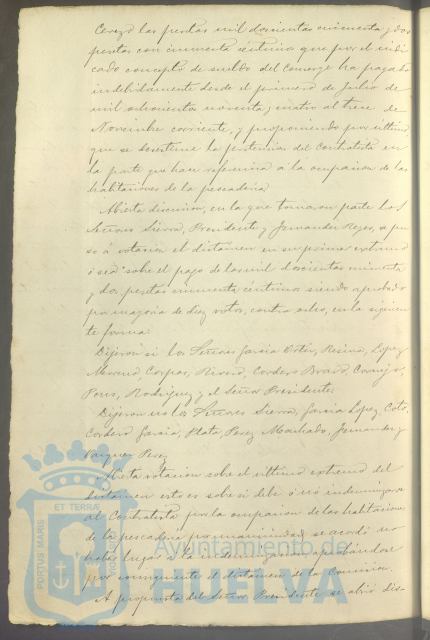 Cerezo las pesetas mil doscientas cincuenta y dos
pesetas con cincuenta céntimos que por el indi
cado concepto de sueldo del Conserge ha pagado
indebidamente desde el primero de Julio de
mil ochocientos noventa y cuatro al trece de
Noviembre corriente, y proponiendo por último
que se desestime la pretension del Contratista en
la parte que hace referencia a la ocupacion de las
habitaciones de la pescadería
Abierta discusion, en la que tomaron parte los
Señores Sierra, Presidente y Fernandez Reyes, se pu
so á votacion el dictamen en su primer extremo
ó sea sobre el pago de las mil doscientas cincuenta
y dos pesetas cincuenta céntimos siendo aprobado
por mayoría de diez votos, contra ocho, en la siguien
te forma:
Dijeron si los Señores Garcia Ortiz, Resina, Lopez
Moreno Corpas, Rivero, Cordero Bravo,
Rodriguez y el Señor Presidente.
Dijeron no los Señores Sierra, Garcia Lopez, Coto,
Cordero Garcia, Plata, Perez Machado, Fernandez y
Vazquez Perez
votacion sobre el ultimo extremo del
dictamen esto es sobre si debe ó nó indemnizarse
al Contratista por la ocupacion de las habitaciones
de la pescadería por unanimidad se acordó no
haber lugar á la indemnizacion aprobandose
por consiguiente el dictamen de la Comision.
A propuesta del Señor Presidente se abrió dis-
ET TERRÆ
PORTUS MARIS
Ayuntamiento de
HUELVA